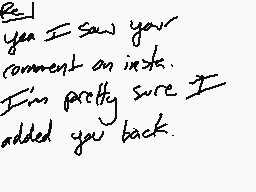 Re]
yea I saw your
comment on insta.
I'm pretty sure I
added you back.